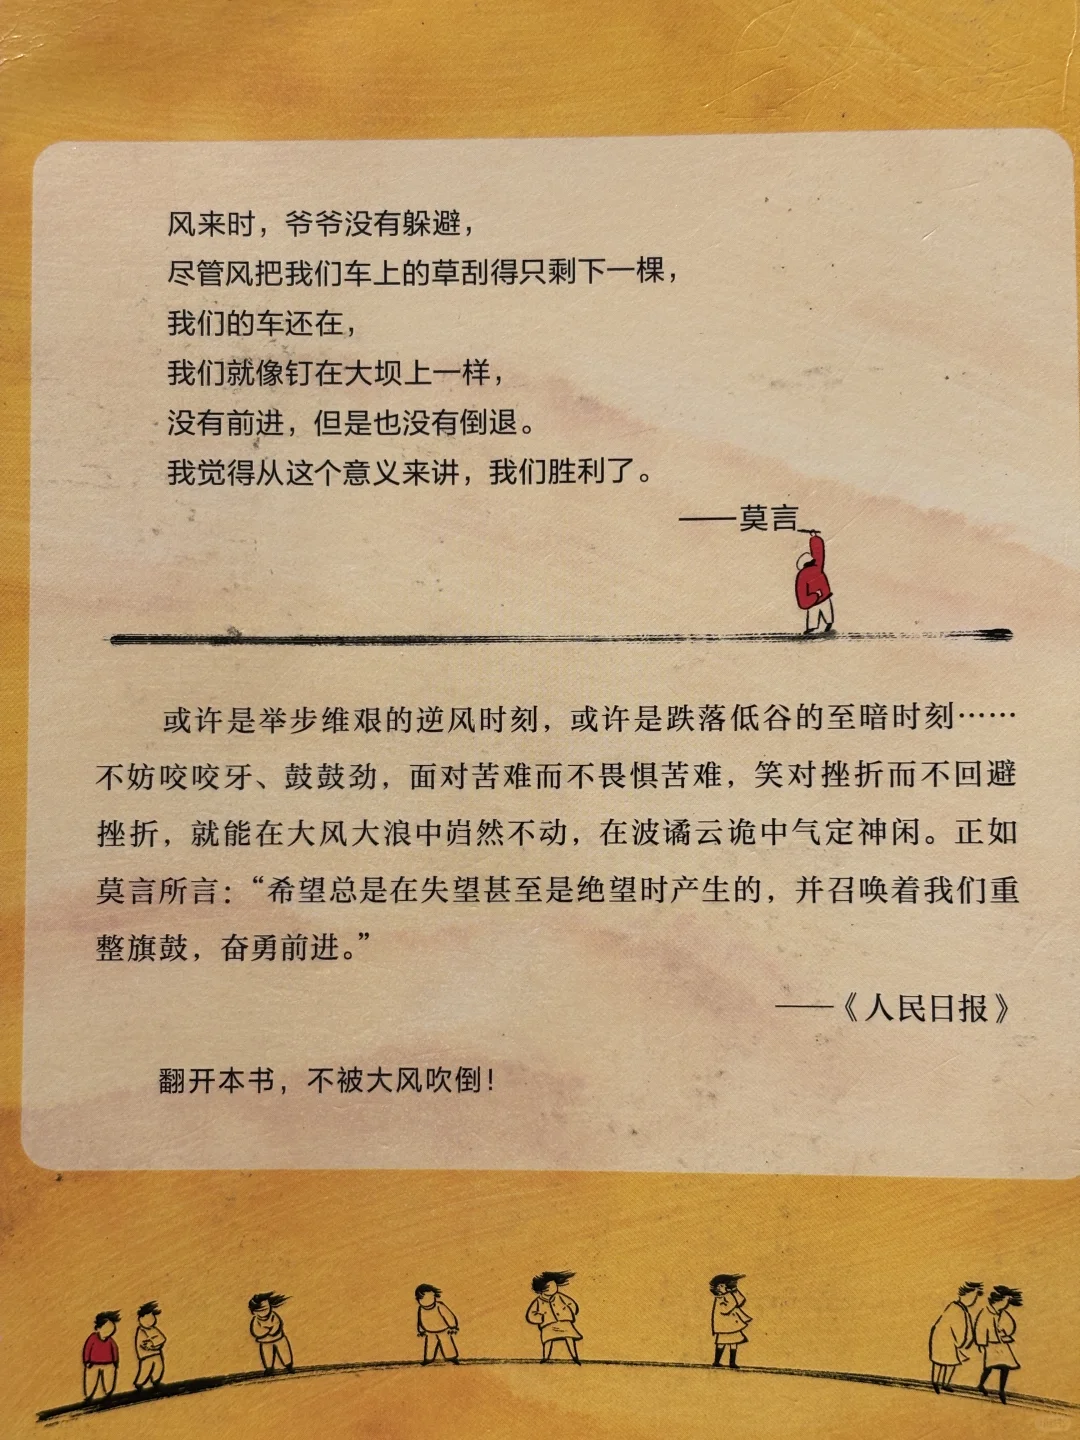 风来时，爷爷没有躲避，
尽管风把我们车上的草刮得只剩下一棵，
我们的车还在，
我们就像钉在大坝上一样，
没有前进，但是也没有倒退。
我觉得从这个意义来讲，我们胜利了。
——莫言
或许是举步维艰的逆风时刻，或许是跌落低谷的至暗时刻……
不妨咬咬牙、鼓鼓劲，面对苦难而不畏惧苦难，笑对挫折而不回避
挫折，就能在大风大浪中岿然不动，在波谲云诡中气定神闲。正如
莫言所言：“希望总是在失望甚至是绝望时产生的，并召唤着我们重
整旗鼓，奋勇前进。”
——《人民日报》
翻开本书，不被大风吹倒！